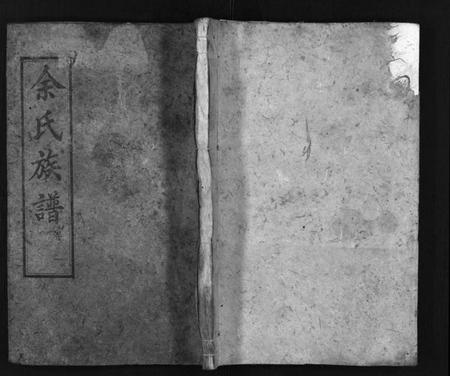 余氏族譜